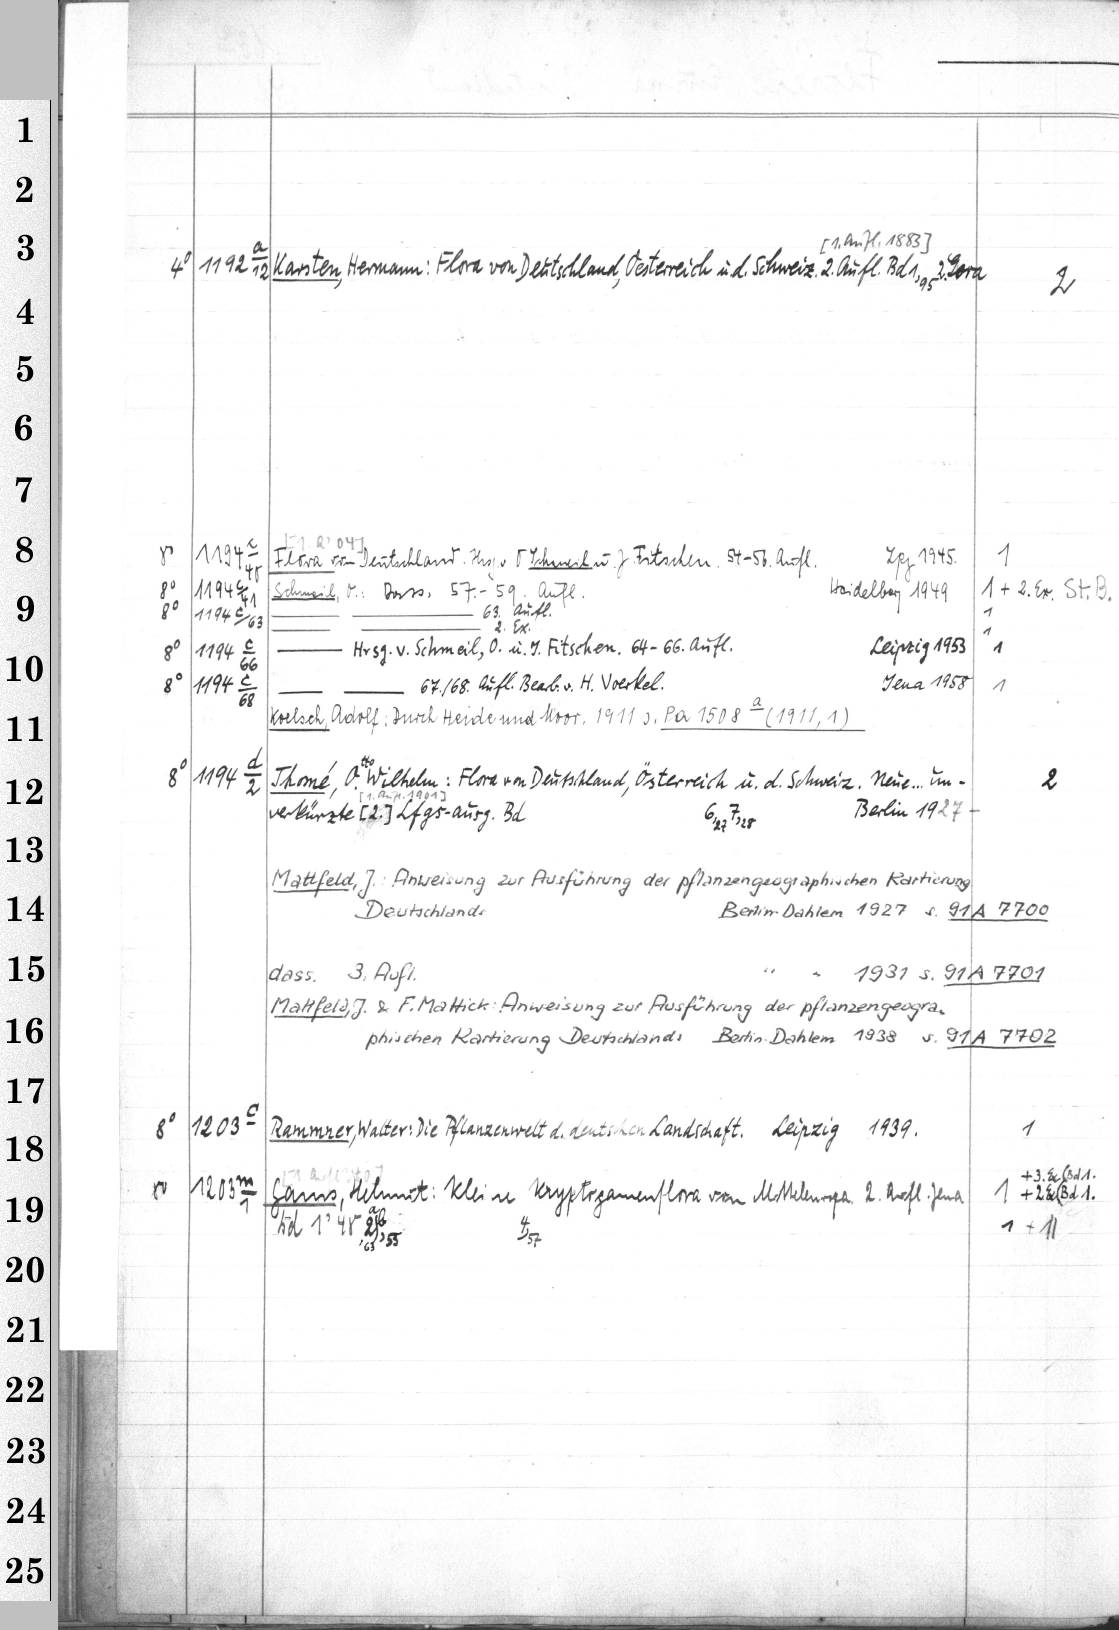 1
2
[1. Aufl. 1883]
3
4° 1192 a/12 Karsten, Hermann: Flora von Deutschland, Österreich u. d. Schweiz. 2. Aufl. Bd 1,95 2. Gera 2
4
5
6
7
[1. A' 04]
8
8° 1194 c/45 Flora von Deutschland. Hrsg. v. O Schmeil u. J Fitschen. 54-56. Aufl. Lpz 1945. 1
8° 1194 c/41 Schmeil, O.: Dass. 57.-59. Aufl. Heidelberg 1949 1 + 2. Ex. St.B.
9
8° 1194 c/63 63. Aufl. 1
2. Ex. 1
8° 1194 c/66 Hrsg. v. Schmeil, O. u. J. Fitschen. 64-66. Aufl. Leipzig 1953 1
10
8° 1194 c/68 67./68. Aufl. Bearb. v. H. Voerkel. Jena 1958 1
11
Koelsch, Adolf: Durch Heide und Moor. 1911 s. Pa 1508 a (1911,1)
12
8° 1194 d/2 Thomé, Otto Wilhelm: Flora von Deutschland, Österreich u. d. Schweiz. Neue... un- 2
[1. Aufl. 1901]
verkürzte [2.] Lfgs-ausg. Bd 6,27 7,28 Berlin 1927-
13
Mattfeld, J.: Anweisung zur Ausführung der pflanzengeographischen Kartierung
14
Deutschlands Berlin-Dahlem 1927 s. 91 A 7700
15
dass. 3. Aufl. " " 1931 s. 91 A 7701
Mattfeld, J. & F. Mattick: Anweisung zur Ausführung der pflanzengeogra-
16
phischen Kartierung Deutschlands Berlin-Dahlem 1938 s. 91 A 7702
17
8° 1203 c Rammner, Walter: Die Pflanzenwelt d. deutschen Landschaft. Leipzig 1939. 1
18
+3. Ex (Bd 1.
19
8° 1203 m/1 Gams, Helmut: Kleine Kryptogamenflora von Mitteleuropa. 2. Aufl. Jena 1 +2 Ex (Bd 1.
Bd 1' 48, 2 a,63 b,55 4,57 1 + 1
20
21
22
23
24
25